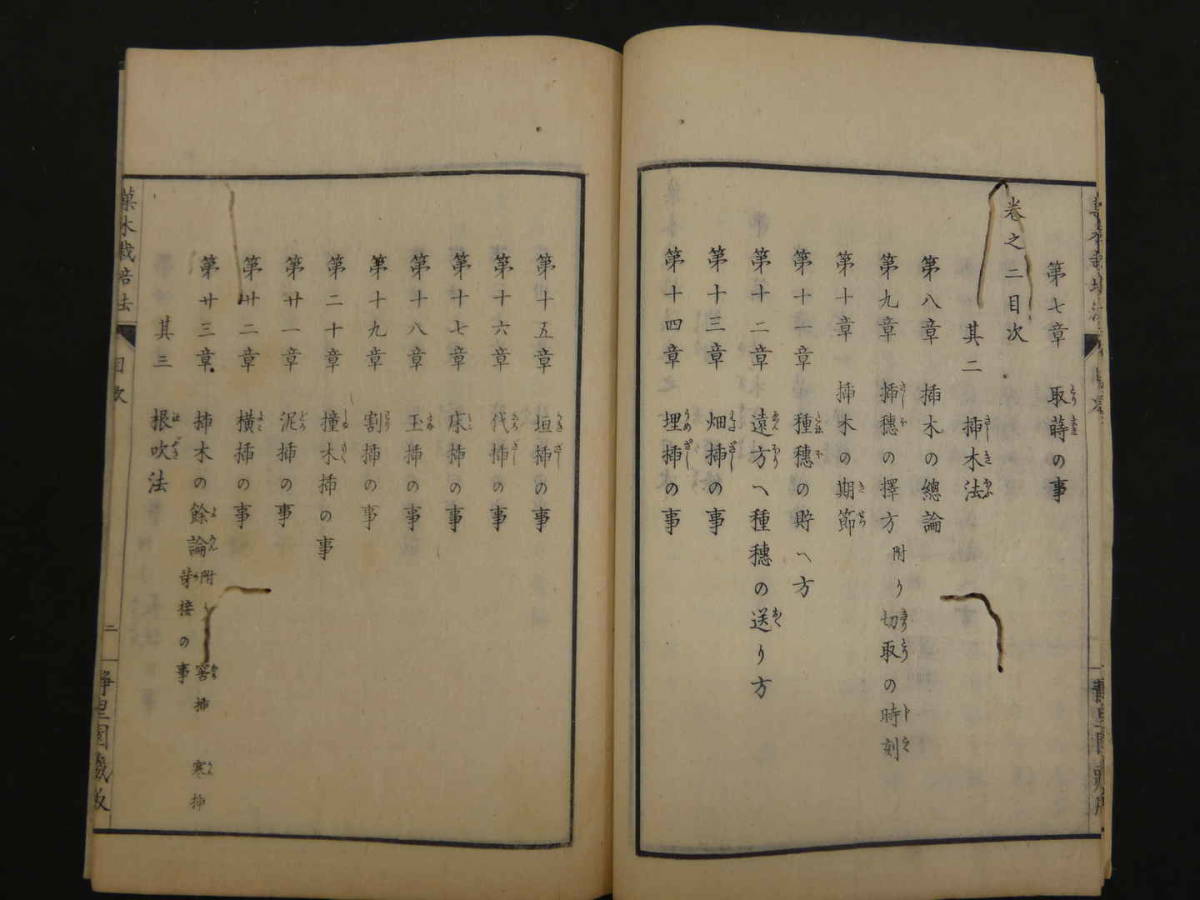 第七章 取蒔の事
巻之二目次
其二 揷木法
第八章 揷木の總論
第九章 揷穗の擇方 附り切取の時刻
第十章 揷木の期節
第十一章 種穗の貯へ方
第十二章 遠方へ種穗の送り方
第十三章 畑揷の事
第十四章 埋揷の事
第十五章 垣揷の事
第十六章 代揷の事
第十七章 床揷の事
第十八章 玉揷の事
第十九章 割揷の事
第二十章 撞木揷の事
第廿一章 泥揷の事
第廿二章 橫揷の事
第廿三章 揷木の餘論 附り 窖揷 寒揷
芽接の事
其三 根吹法
菓木栽培法 目次 二 靜里園藏板